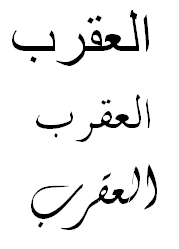 العقرب
العقرب
العقرب